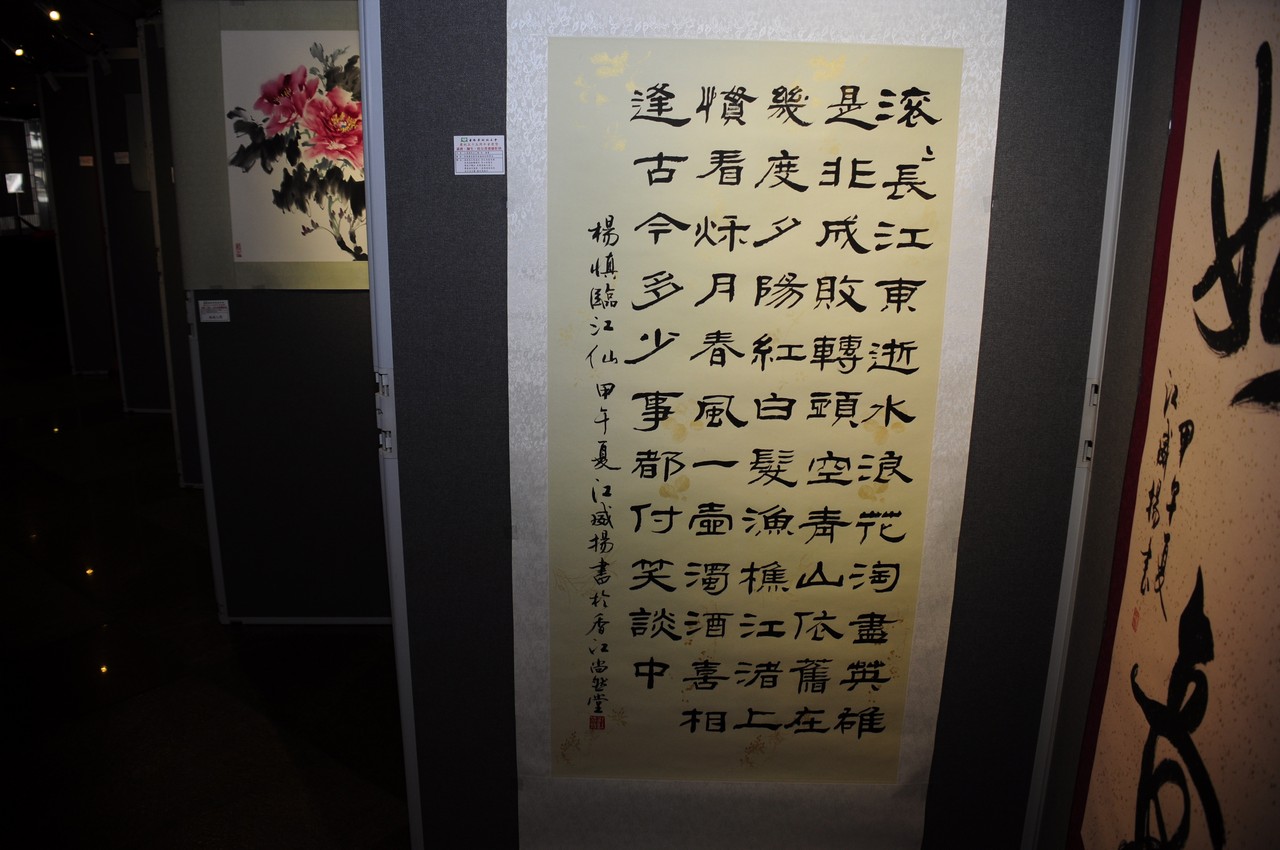 滚〻長江東逝水浪花淘盡英雄
是非成敗轉頭空青山依舊在
幾度夕陽紅白髮漁樵江渚上
慣看秌月春風一壺濁酒喜相
逢古今多少事都付笑談中
楊慎臨江仙 甲午夏江威揚書於香江尚然堂
甲午夏
江威揚書